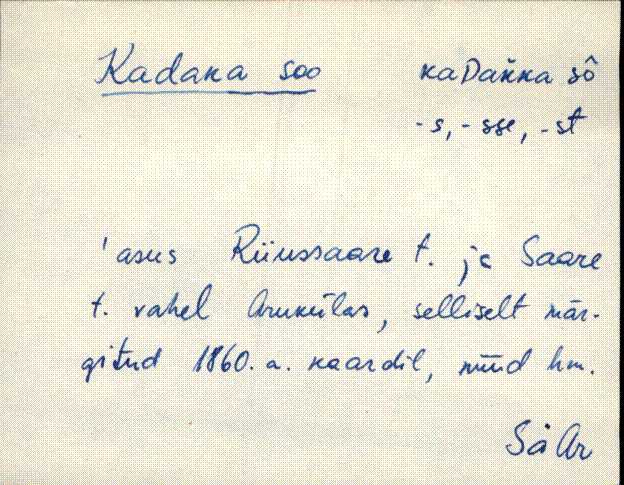 Kadaka soo kaDàkka sô
-s, -sse, -st
'asus Riiussaare t. ja Saare
t. vahel Arukülas, selliselt mär-
gitud 1860. a. kaardil, nüüd hm.
Sa Ar